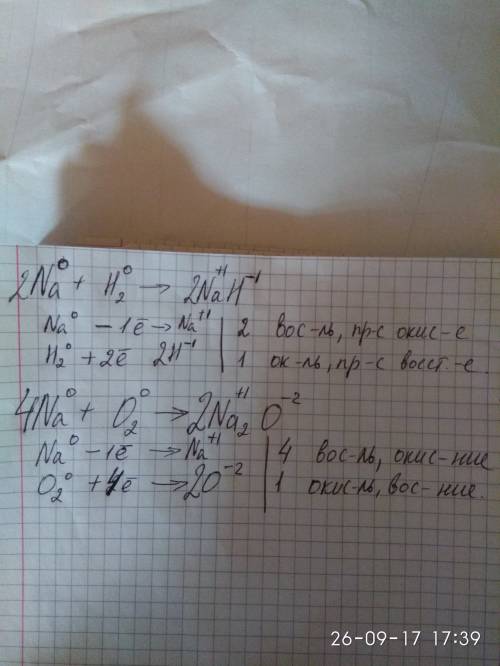 2Na⁰ + H₂⁰ → 2Na⁺¹H⁻¹
Na⁰ - 1ē → Na⁺¹ | 2 вос-ль, пр-с окис-е
H₂⁰ + 2ē 2H⁻¹ | 1 ок-ль, пр-с восст.-е.
4Na⁰ + O₂⁰ → 2Na₂⁺¹O⁻²
Na⁰ - 1ē → Na⁺¹ | 4 вос-ль, окис-ние
O₂⁰ + 4ē → 2O⁻² | 1 окис-ль, вос-ние.
26-09-17 17:39